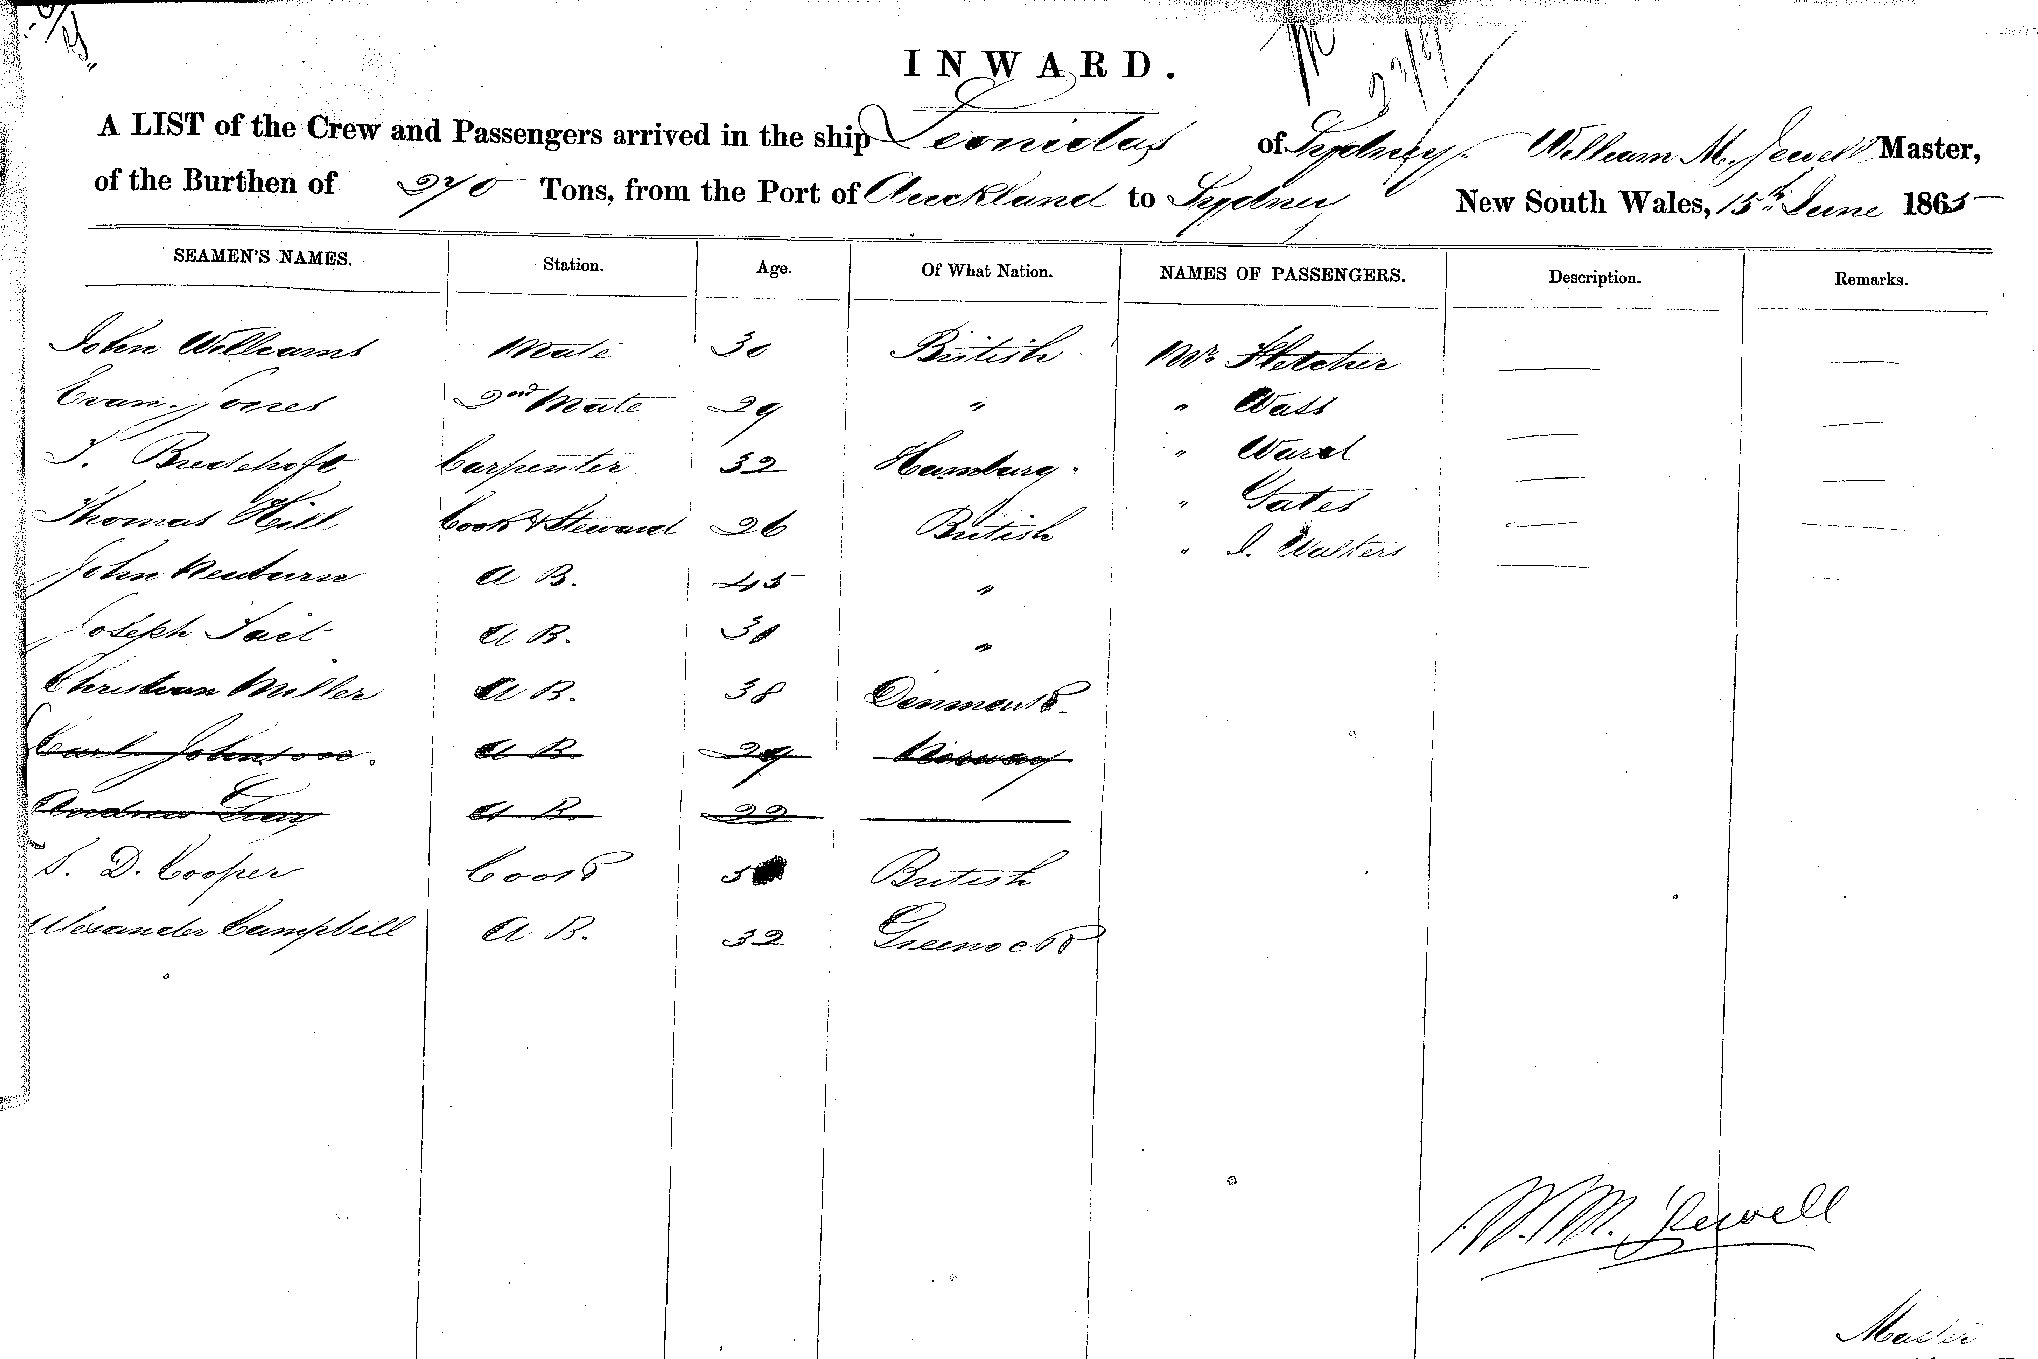 INWARD.
A LIST of the Crew and Passengers arrived in the ship Leonidas of Sydney William M. Jewell Master,
of the Burthen of 270 Tons, from the Port of Auckland to Sydney New South Wales, 15th June 1865
SEAMEN'S NAMES. Station. Age. Of What Nation. NAMES OF PASSENGERS. Description. Remarks.
John Williams Mate 30 British Mr. Fletcher
Evan Jones 2nd Mate 29 " " Wass
J. Bredehoft Carpenter 32 Hamburg " Ward
Thomas Hill Cook & Steward 26 British " Gates
John Newburn A B. 45 " " J. Walters
Joseph Tait A B. 31 "
Christian Miller A B. 38 Denmark
Carl Johnson. A B 29 Norway
Andrew A B. 22
S. D. Cooper Cook British
Alexander Campbell A B. 32 Greenock
W. M. Jewell
Master